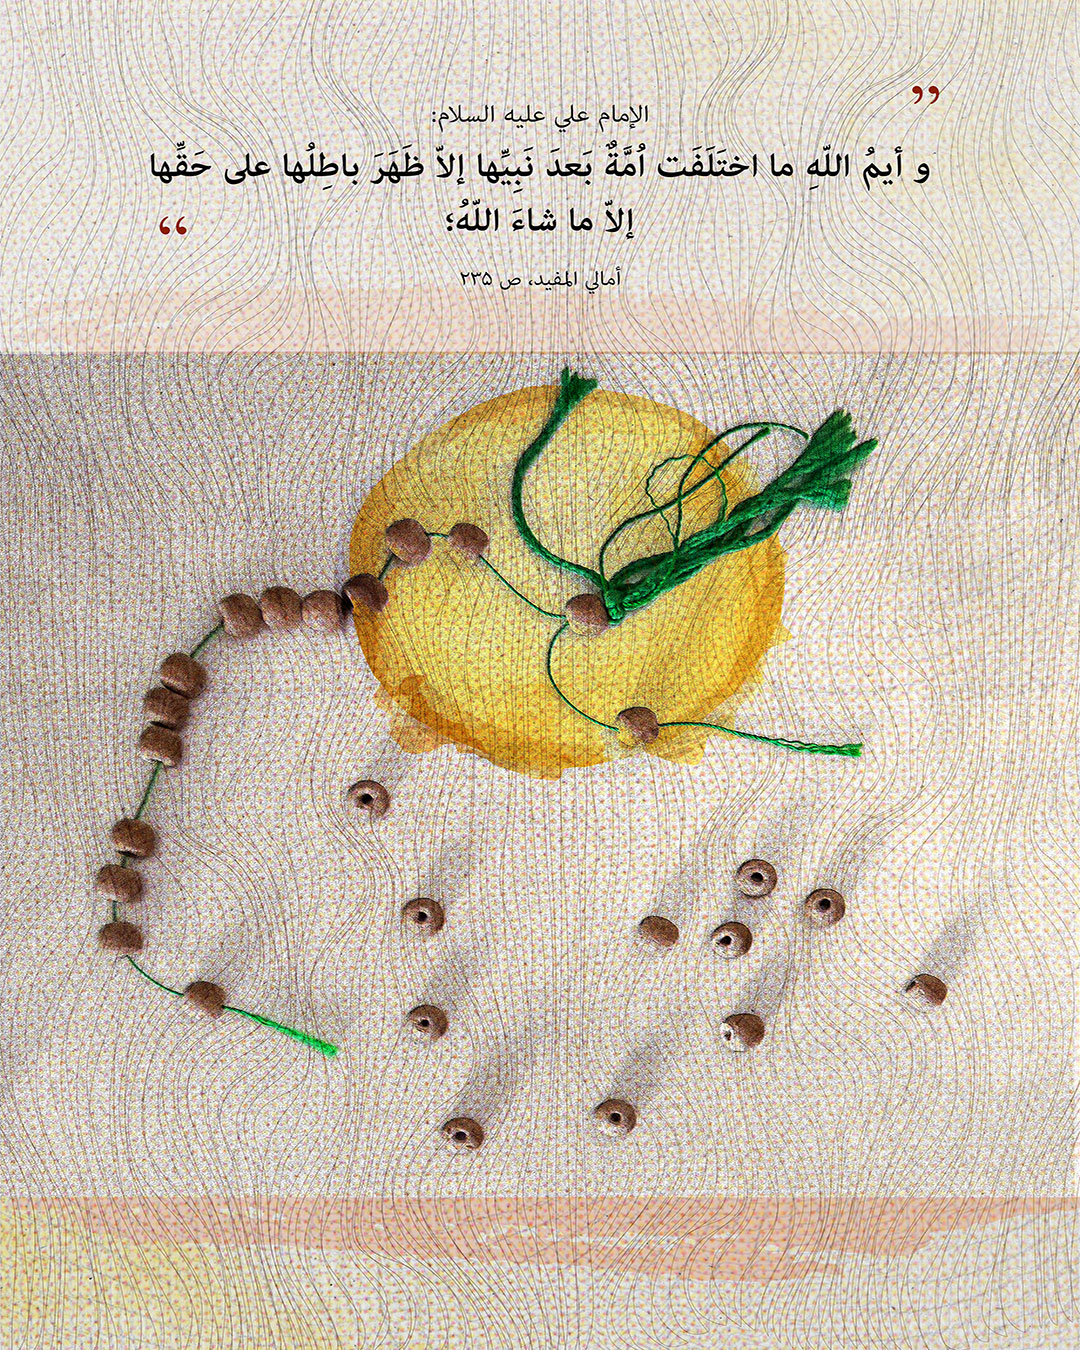 الإمام علي عليه السلام:
”و أيمُ اللّهِ ما اختَلَفَت اُمَّةٌ بَعدَ نَبِيِّها إلاّ ظَهَرَ باطِلُها على حَقِّها
إلاّ ما شاءَ اللّهُ؛“
أمالي المفيد، ص ۲۳۵